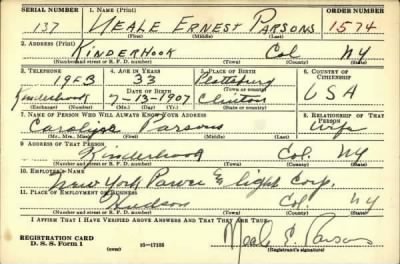 SERIAL NUMBER 1. NAME (Print) ORDER NUMBER
137 NEALE ERNEST PARSONS 1574
(First) (Middle) (Last)
2. ADDRESS (Print)
KINDERHOOK Col NY
(Number and street or R. F. D. number) (Town) (County) (State)
3. TELEPHONE 4. AGE IN YEARS 5. PLACE OF BIRTH 6. COUNTRY OF CITIZENSHIP
19F3 33 Plattsburg
DATE OF BIRTH (Town or county) USA
Kinderhook 7-13-1907 Clinton
(Exchange) (Number) (Mo.) (Day) (Yr.) (State or country)
7. NAME OF PERSON WHO WILL ALWAYS KNOW YOUR ADDRESS 8. RELATIONSHIP OF THAT PERSON
Carolyne Parsons Wife
(Mr., Mrs., Miss) (First) (Middle) (Last)
9. ADDRESS OF THAT PERSON
Kinderhook Col. NY
(Number and street or R. F. D. number) (Town) (County) (State)
10. EMPLOYER'S NAME
New York Power & light Corp.
11. PLACE OF EMPLOYMENT OR BUSINESS
Hudson Col NY
(Number and street or R. F. D. number) (Town) (County) (State)
I AFFIRM THAT I HAVE VERIFIED ABOVE ANSWERS AND THAT THEY ARE TRUE.
REGISTRATION CARD Neale E. Parsons
D. S. S. Form 1 16-17105 (Registrant's signature)